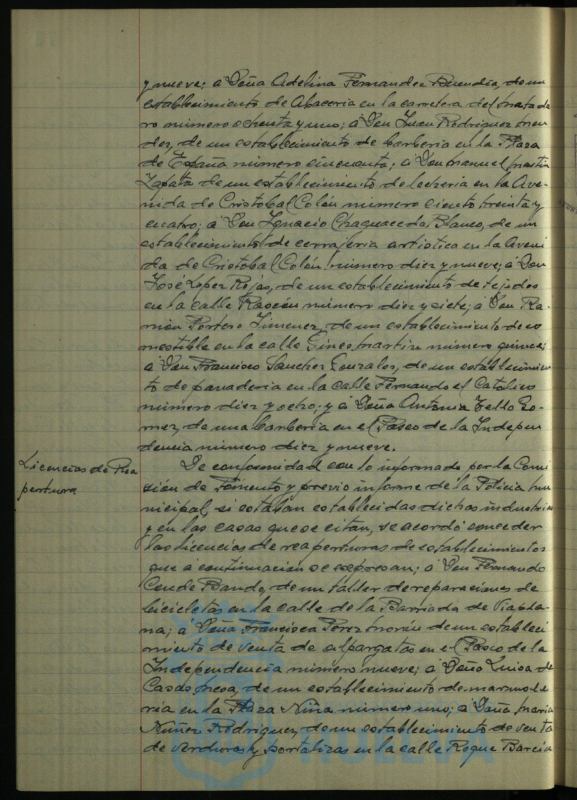 y nueve; á Doña Adelina Fernandez Buendia, de un
establecimiento de Abaceria en la carretera del matade
ro número ochenta y uno; á Don Juan Rodriguez Men
dez, de un establecimiento de barberia en la Plaza
de España número cincuenta, á Don Manuel Martin
Zapata de un establecimiento de lecheria en la Ave-
nida de Cristobal Colón número ciento treinta y
cuatro; á Don Ignacio Chaguaceda Blanco, de un
establecimiento de cerrajeria artistica en la Aveni
da de Cristobal Colón número diez y nueve; á Don
José Lopez Rojas, de un establecimiento de tejidos
en la calle Rascón número diez y siete; á Don Ra-
món Portero Jimenez, de un establecimiento de co
mestible en la calle Gines Martin número quince;
á Don Francisco Sanchez Gonzalez, de un establecimien
to de panaderia en la calle Fernando el Católico
número diez y ocho; y á Doña Antonia Tello Go-
mez, de una barberia en el Paseo de la Indepen
dencia número diez y nueve.
Licencias de Rea
pertura
De conformidad con lo informado por la Comi
sión de Fomento y previo informe de la Policia Mu
nicipal, si estaban establecidas dichas industrias
y en las casas que se citan, se acordó conceder
las licencias de reaperturas de establecimientos
que á continuación se expresan; á Don Fernando
Conde Pando, de un taller de reparaciones de
bicicletas en la calle de la Barriada de
á Doña Francisca Perez de un estableci
miento de venta de alpargatas en el Paseo de la
Independencia número nueve; á Doña Luisa de
de un establecimiento de marmole
ria en la Plaza Niña número uno; á Doña Maria
Nuñez Rodriguez, de un establecimiento de venta
de verduras y hortalizas en la calle Roque Barcia
HUELVA